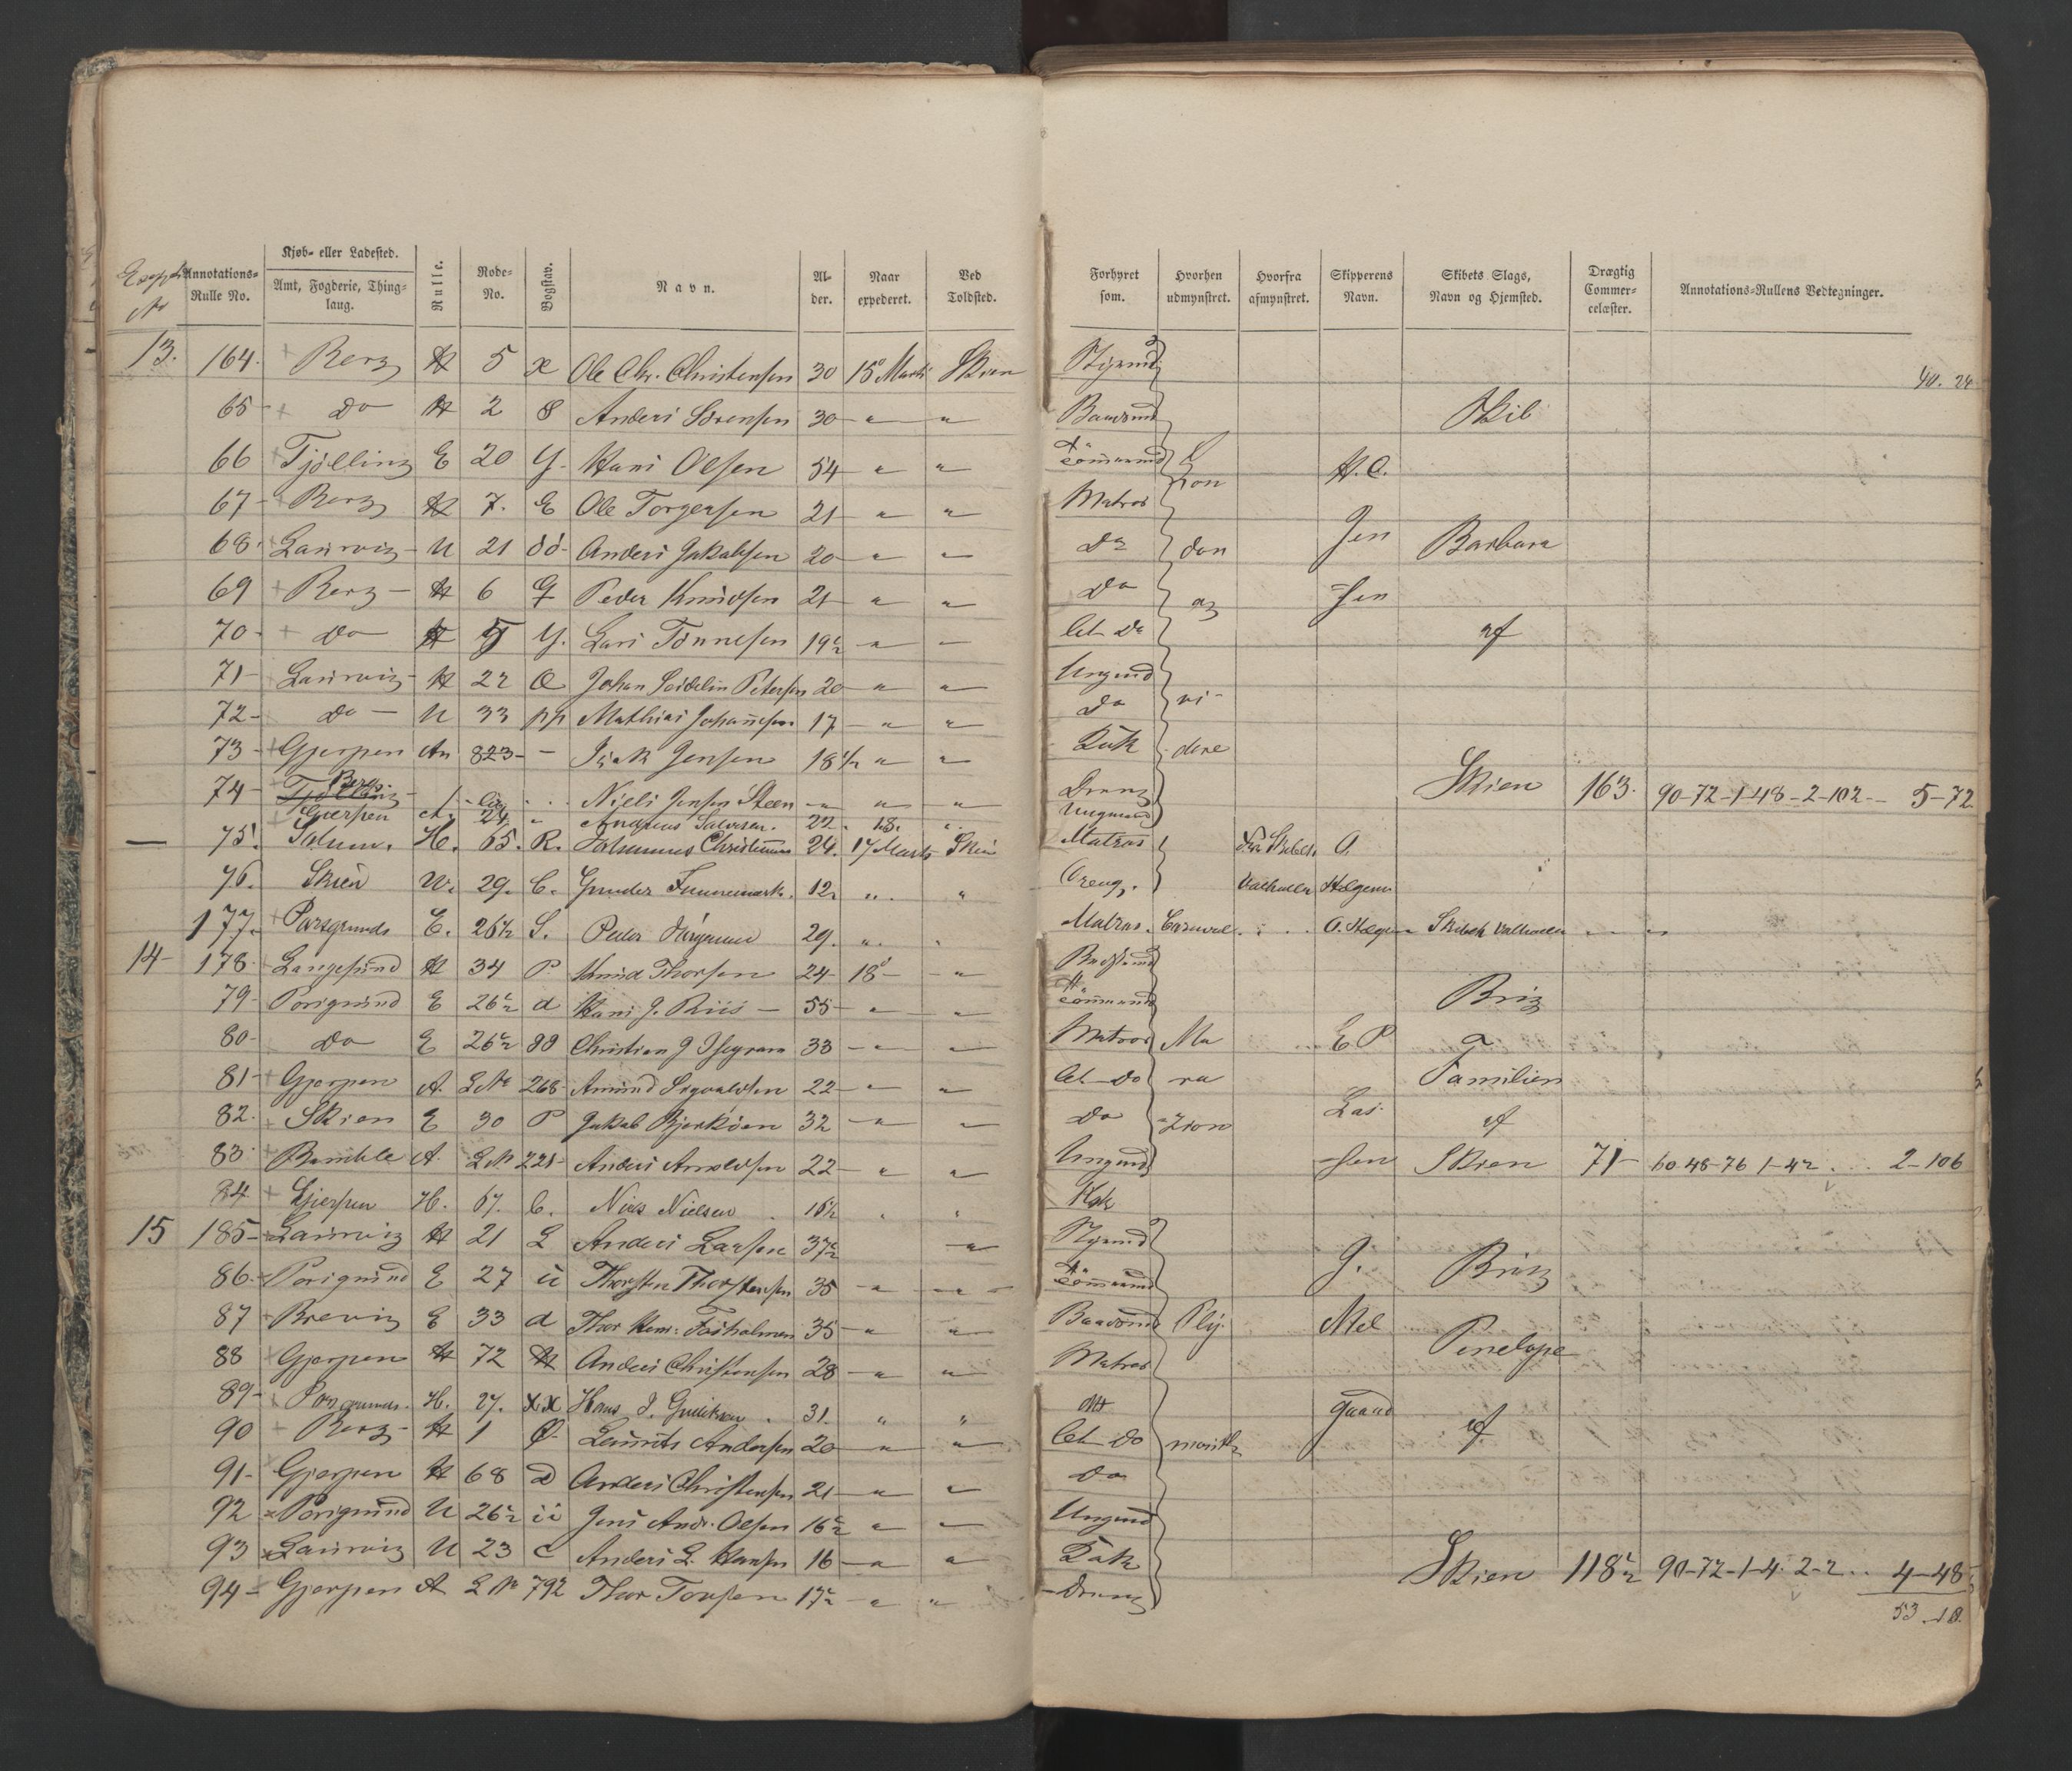 Exp. No
Annotations-Rulle No.
Kjøb- eller Ladested.
Amt, Fogderie, Thinglaug.
Rulle.
Rode-No.
Bogstav.
Navn.
Alder.
Naar expederet.
Ved Toldsted.
Forhyret som.
Hvorhen udmynstret.
Hvorfra afmynstret.
Skipperens Navn.
Skibets Slags, Navn og Hjemsted.
Drægtig Commercelæster.
Annotations-Rullens Vedtegninger.
13. 164. Berg H 5 x Ole Chr. Christensen 30 15 Marts Skien Styrmd 40. 24
65 + Do H 2 8 Anders Sörensen 30 " " Baadsmd Skib
66 Tjölling E 20 Y. Hans Olsen 54 " " Tömmermd Lon H. C.
67 Berg H 7. E Ole Torgersen 21 " " Matros
68 Laurvig U 21 Anders Jakobsen 20 " " Do don Jen Barbara
69 + Berg H 6 Peder Knudsen 21 " " Do og sen
70 + Do H Y. Lars Tönnesen 19½ " Let Do af
71 Laurvig H 22 Johan Seidelin Petersen 20 " " Ungmd
72 Do U 33 pp Mathias Johannesen 17 " " Do vi-
73 + Gjerpen An 823 - Isak Jensen 18½ " " Kok dere
74 Berg Niels Jensen Steen " " Dreng Skien 163. 90-72-1-48-2-102 5-72
Gjerpen A. 24 Andreas Salvesen. 22. 18. " Ungmand
75. Solum. H. 65. R. Johannes Christensen 24. 17 Marts Skien Matros fra Skibet O.
76. Skien U. 29. C. Gunder 12 " " Dreng. Valhalla Helgesen
177. Porsgrunds E. 26½ S. Peder 29. " Matros. O. Skibet Valhalla
14 178 Langesund H 34 P Knud Thorsen 24 18 " Baadsmd
79 Porsgrund E 26½ d Hans J. Riis 55 " " Tömmermand Brig
80 Do E 26½ Christian J 33 " " Matros Ma E P
81 + Gjerpen A. L No 268 Amund Sigvaldsen 22 " " Let Do ra Familien
82. + Skien E 30 P Jakob Bjerköen 32 " " Do Zion Las af
83 Bamble A. L No 221 Anders Arnoldsen 22 " " Ungmd sen Skien 71 60-48-76 1-42 2-106
84 + Gjerpen H. 67. C. Niels Nielsen 16½ Kok
15 185 Laurvig H 21 L Anders Larsen 37½ " Styrmd G. Brig
86 Porsgrund E 27 ü Thorsten Thorstensen 35 " " Tömmermd
87 Brevig E 33 d Thor Hen: 35 " " Baadsmd Ply Mel
88 + Gjerpen H 72 H Anders Christensen 28 " " Matros Penelope
89 H. 27. XX Hans J. 31. " " gaard
90 + Berg H 1 Ø Laurits Andersen 20 " " Let Do mouth af
91 Gjerpen H 68 D Anders Christensen 21 " " Do
92 Porsgrund U 26½ ii Jens Andr. Olsen 16½ " " Ungmd
93 Laurvig U 23 c Anders L. Hansen 16 " " Kok Skien 118½ 90-72-1-4. 2-2 4-48
94 Gjerpen A L No 792 Thor Torsen 17½ " " Dreng 53.18.